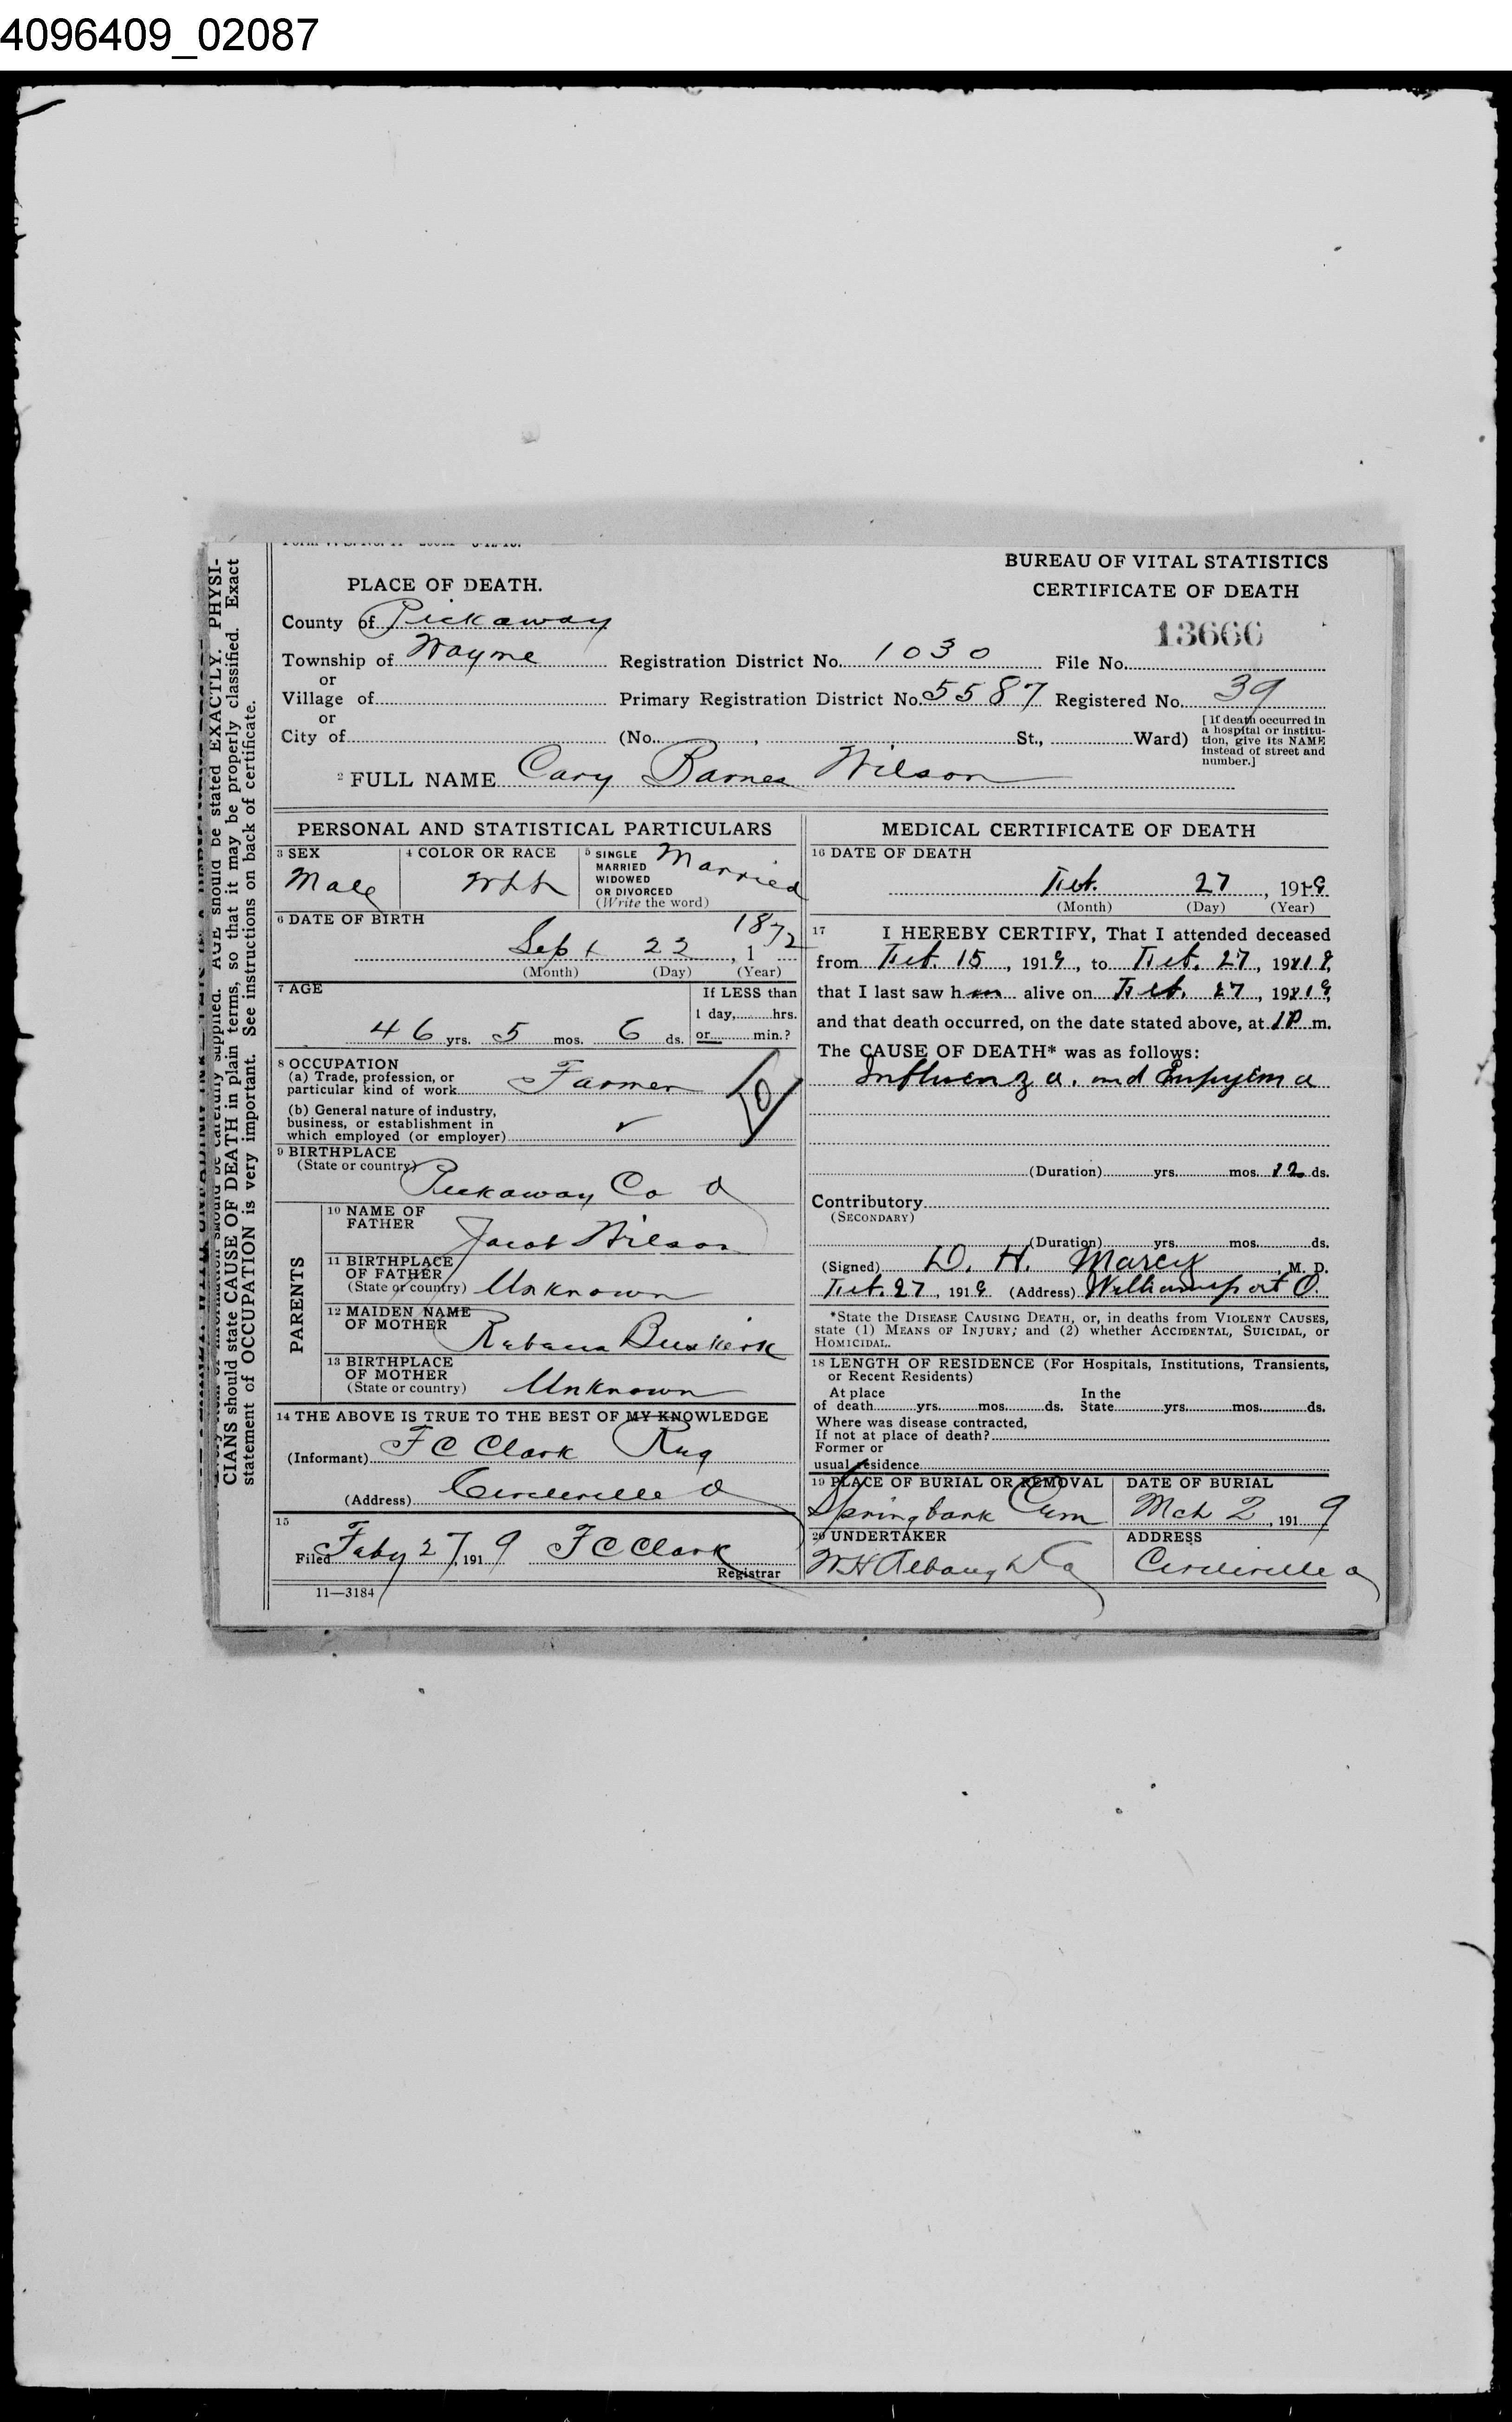 4096409_02087
BUREAU OF VITAL STATISTICS
CERTIFICATE OF DEATH
PLACE OF DEATH.
13666
County of Pickaway
Township of Wayne Registration District No. 1030 File No.
or
Village of Primary Registration District No. 5587 Registered No. 39
or
City of (No. , St., Ward)
[If death occurred in
a hospital or institu-
tion, give its NAME
instead of street and
number.]
2 FULL NAME Cary Barnes Wilson
PERSONAL AND STATISTICAL PARTICULARS
3 SEX
Male
4 COLOR OR RACE
Wht
5 SINGLE
MARRIED
WIDOWED
OR DIVORCED
(Write the word)
Married
6 DATE OF BIRTH
Sept 22, 1 1872
(Month) (Day) (Year)
7 AGE
46 yrs. 5 mos. 6 ds.
If LESS than
1 day, hrs.
or min.?
8 OCCUPATION
(a) Trade, profession, or
particular kind of work Farmer
(b) General nature of industry,
business, or establishment in
which employed (or employer) ✓
9 BIRTHPLACE
(State or country)
Pickaway Co O
PARENTS
10 NAME OF
FATHER
Jacob Wilson
11 BIRTHPLACE
OF FATHER
(State or country) Unknown
12 MAIDEN NAME
OF MOTHER
Buskirk
13 BIRTHPLACE
OF MOTHER
(State or country) Unknown
14 THE ABOVE IS TRUE TO THE BEST OF MY KNOWLEDGE
(Informant) F C Clark Reg
(Address) Circleville O
15
Filed Feby 27, 1919 F C Clark
Registrar
11—3184
MEDICAL CERTIFICATE OF DEATH
16 DATE OF DEATH
Feb. 27, 1919
(Month) (Day) (Year)
17 I HEREBY CERTIFY, That I attended deceased
from Feb. 15, 1919, to Feb. 27, 1919,
that I last saw him alive on Feb. 27, 1919,
and that death occurred, on the date stated above, at 1P m.
The CAUSE OF DEATH* was as follows:
Influenza and Empyema
(Duration) yrs. mos. 12 ds.
Contributory
(SECONDARY)
(Duration) yrs. mos. ds.
(Signed) D. H. Marcy, M. D.
Feb. 27, 1919 (Address) Williamsport O.
*State the DISEASE CAUSING DEATH, or, in deaths from VIOLENT CAUSES,
state (1) MEANS OF INJURY; and (2) whether ACCIDENTAL, SUICIDAL, or
HOMICIDAL.
18 LENGTH OF RESIDENCE (For Hospitals, Institutions, Transients,
or Recent Residents)
At place In the
of death yrs. mos. ds. State yrs. mos. ds.
Where was disease contracted,
If not at place of death?
Former or
usual residence
19 PLACE OF BURIAL OR REMOVAL
Springbank Cem
DATE OF BURIAL
Mch 2, 1919
20 UNDERTAKER
W H Albaugh Co
ADDRESS
Circleville O
CIANS should state CAUSE OF DEATH in plain terms, so that it may be properly classified. Exact
statement of OCCUPATION is very important. See instructions on back of certificate.
AGE should be stated EXACTLY. PHYSI-